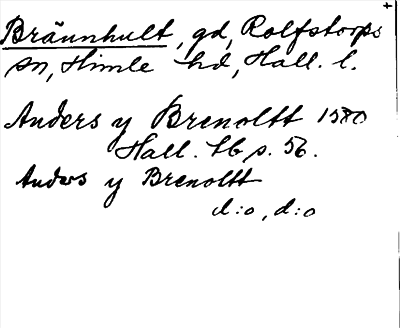 Brännhult, gd, Rolfstorps
sn, Himle hd, Hall. l.
Anders y Brenoltt 1580
Hall. lb s. 56.
Anders y Brenoltt
d:o, d:o